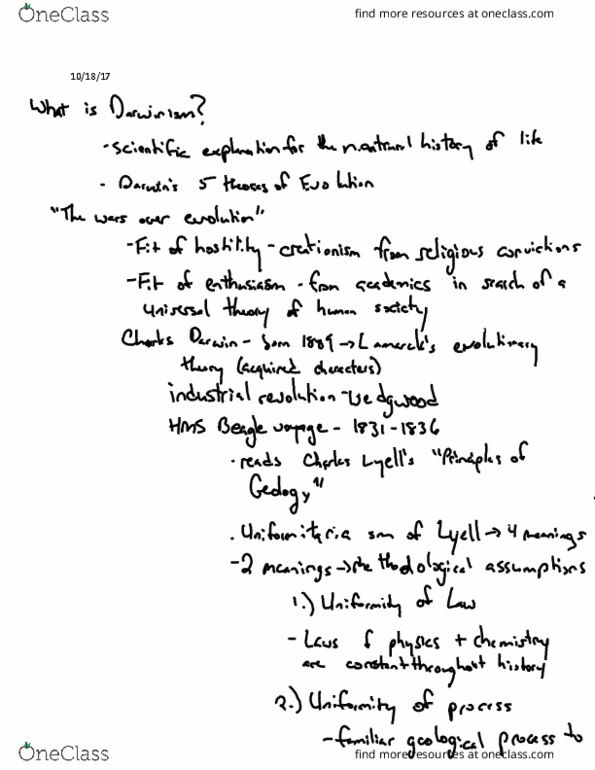 OneClass
find more resources at oneclass.com
10/18/17
What is Darwinism?
- scientific explanation for the natural history of life
- Darwin's 5 theories of Evolution
"The wars over evolution"
- Fit of hostility - creationism from religious convictions
- Fit of enthusiasm - from academics in search of a
universal theory of human society
Charles Darwin - born 1889 → Lamarck's evolutionary
theory (acquired characters)
industrial revolution - Wedgwood
HMS Beagle voyage - 1831-1836
- reads Charles Lyell's "Principles of
Geology"
. Uniformitaria sm of Lyell → 4 meanings
- 2 meanings → methodological assumptions
1.) Uniformity of Law
- Laws of physics + chemistry
are constant throughout history
2.) Uniformity of process
- familiar geological process to
OneClass
find more resources at oneclass.com